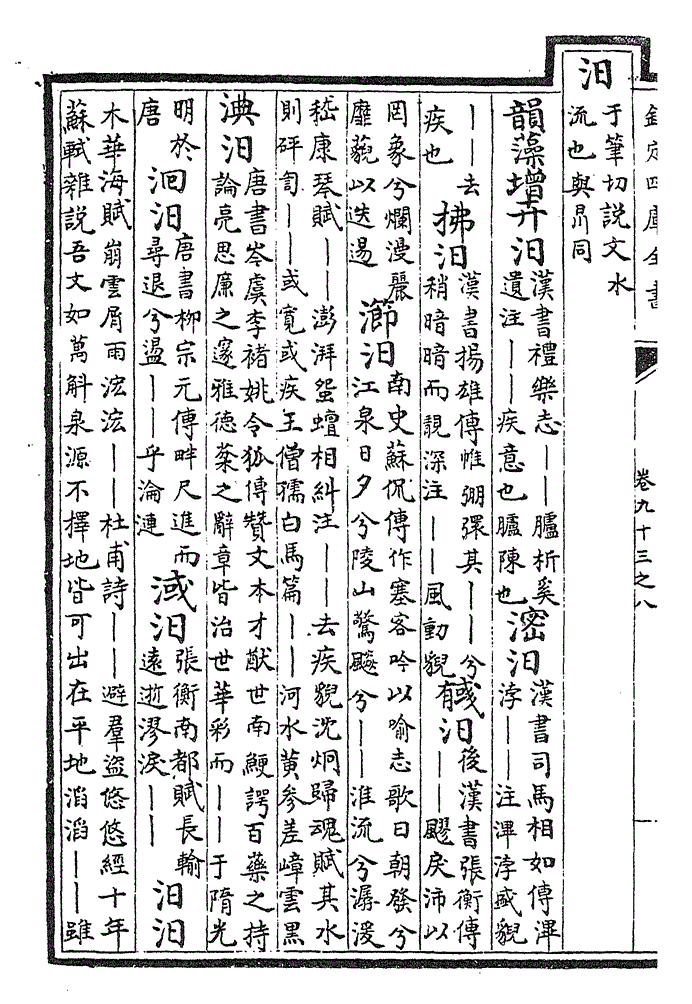 欽定四庫全書
卷九十三之八
汨
于筆切説文水
流也與㫕同
韻藻增卉汨
漢書禮樂志——臚析奚
遺注——疾意也臚陳也
滵汨
漢書司馬相如傳渾
浡——注渾浡盛貌
——去
疾也
拂汨
漢書揚雄傳帷弸彋其——兮
稍暗暗而靚深注——風動貌
戫汨
後漢書張衡傳
——飂戾沛以
罔象兮爛漫麗
靡藐以迭逷
瀄汨
南史蘇侃傳作塞客吟以喻志歌曰朝發兮
江泉日夕兮陵山驚飈兮——淮流兮潺湲
嵇康琴賦——澎湃蜿蟺相糾注——去疾貌沈炯歸魂賦其水
則砰訇——或寛或疾王僧孺白馬篇——河水黄參差嶂雲黒
淟汨
唐書岑虞李褚姚令狐傳贊文本才猷世南鯁諤百藥之持
論亮思廉之邃雅德棻之辭章皆治世華彩而——于隋光
明於
唐
洄汨
唐書柳宗元傳畔尺進而
尋退兮盪——乎淪漣
淢汨
張衡南都賦長輸
遠逝漻淚——
汨汨
木華海賦崩雲屑雨浤浤——杜甫詩——避羣盜悠悠經十年
蘇軾雜説吾文如萬斛泉源不擇地皆可出在平地滔滔——雖